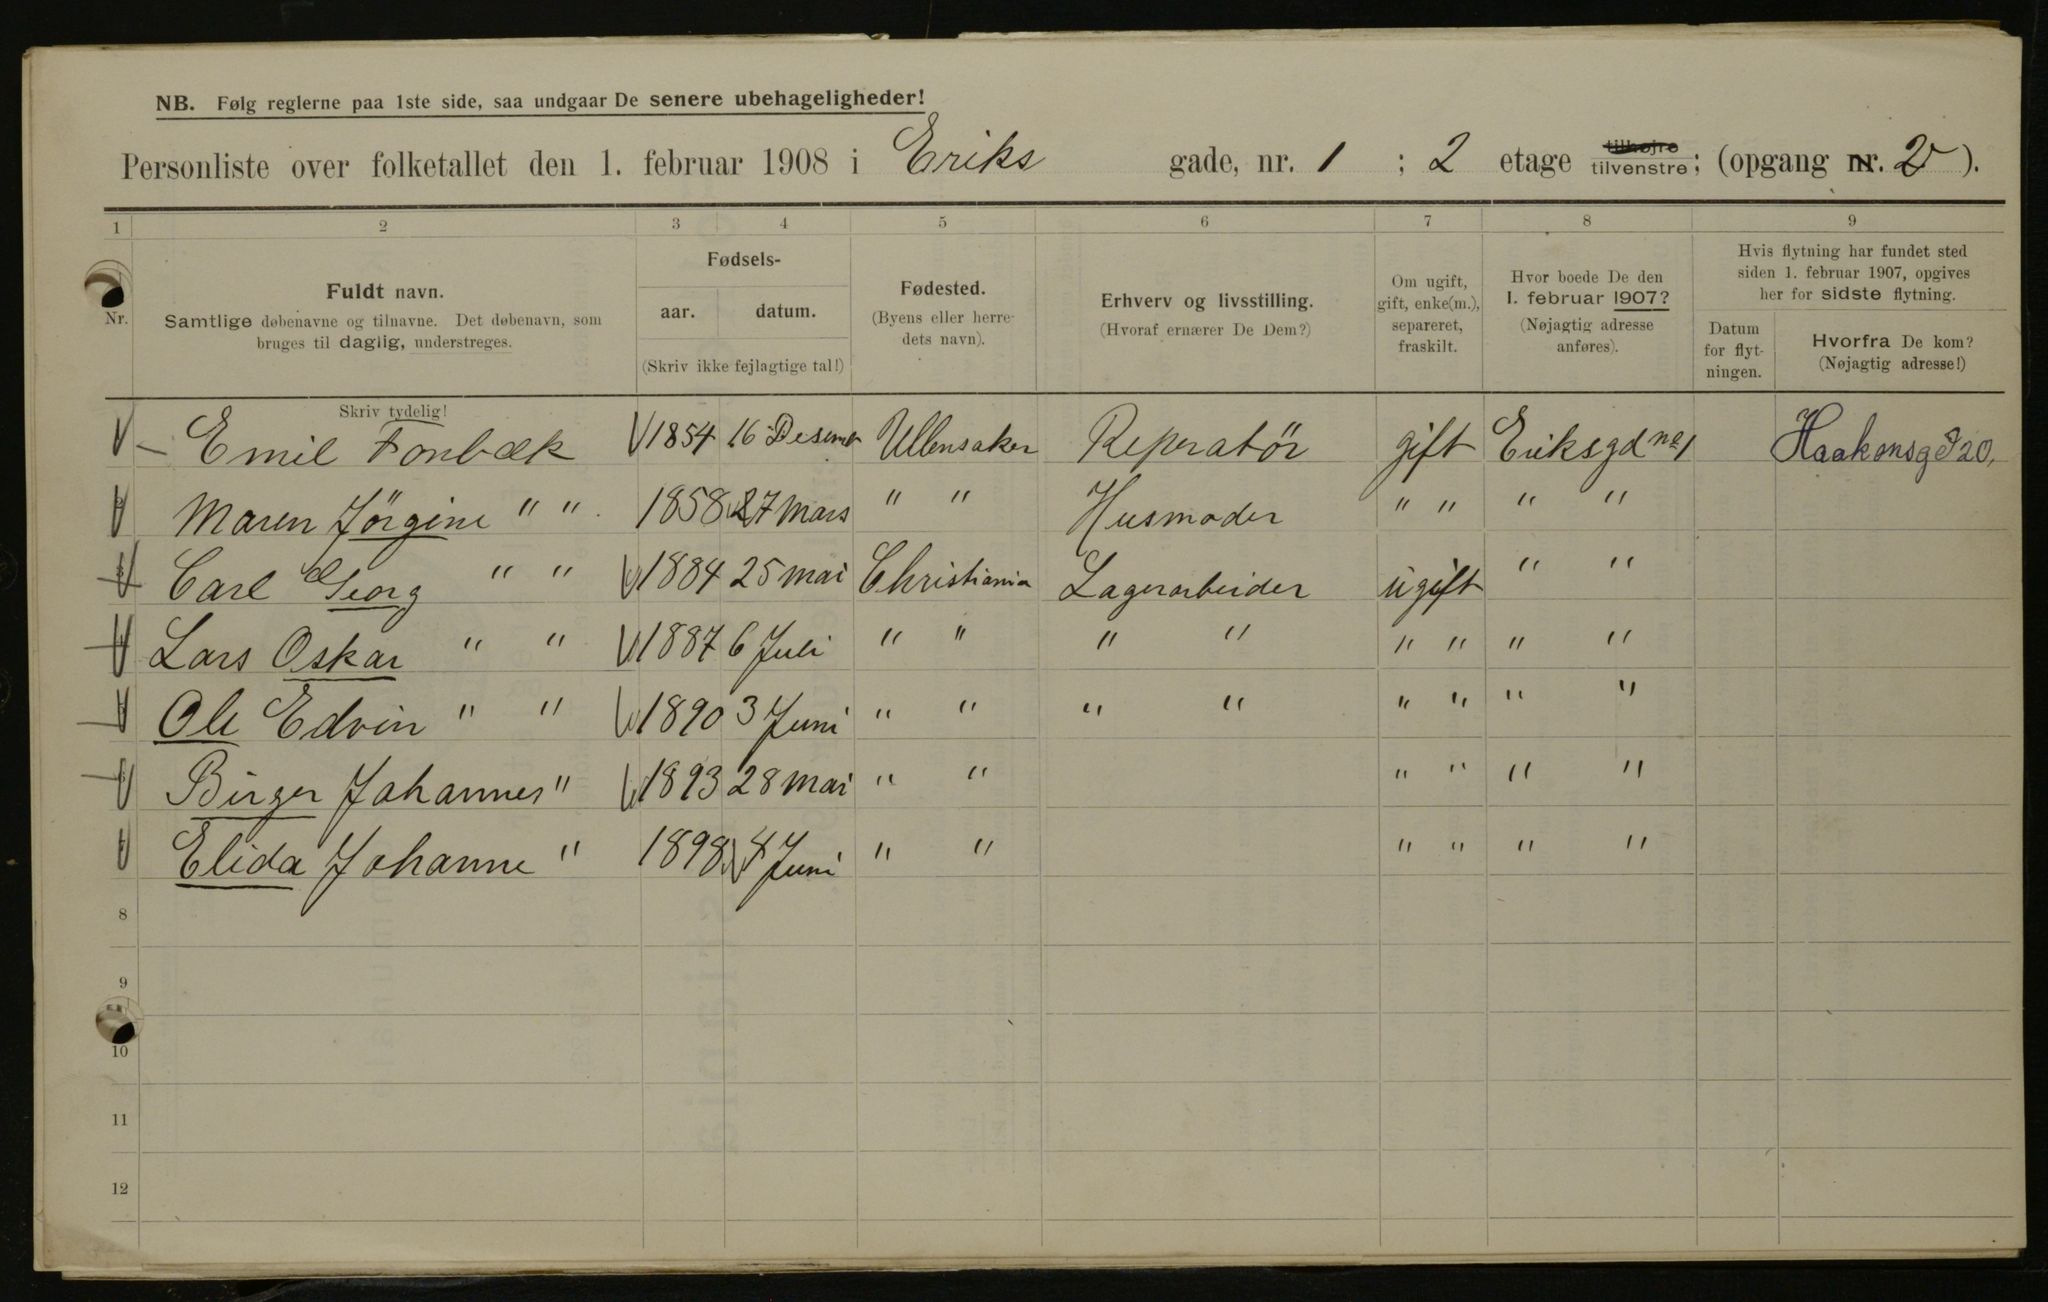 NB. Følg reglerne paa 1ste side, saa undgaar De senere ubehageligheder!
Personliste over folketallet den 1. februar 1908 i Eriks gade, nr. 1 ; 2 etage tilhøjre tilvenstre; (opgang nr. 2 ).
1 2 3 4 5 6 7 8 9
Nr.
Fuldt navn.
Samtlige døbenavne og tilnavne. Det døbenavn, som
bruges til daglig, understreges.
Skriv tydelig!
Fødsels-
aar. datum.
(Skriv ikke fejlagtige tal!)
Fødested.
(Byens eller herre-
dets navn).
Erhverv og livsstilling.
(Hvoraf ernærer De Dem?)
Om ugift,
gift, enke(m.),
separeret,
fraskilt.
Hvor boede De den
1. februar 1907?
(Nøjagtig adresse
anføres).
Hvis flytning har fundet sted
siden 1. februar 1907, opgives
her for sidste flytning.
Datum
for flyt-
ningen.
Hvorfra De kom?
(Nøjagtig adresse!)
Emil Fonbæk 1854 16 Desember Ullensaker Reperatör gift Eriksgd no 1 Haakonsgd 20,
Maren Jörgine " " 1858 27 Mars " " Husmoder " " " "
Carl Georg " " 1884 25 Mai Christiania Lagerarbeider ugift " "
Lars Oskar " " 1887 6 Juli " " " " " " " "
Ole Edvin " " 1890 3 Juni " " " " " " " "
Birger Johannes " 1893 28 Mai " " " " " "
Elida Johanne " 1898 4 Juni " " " " " "
8
9
10
11
12